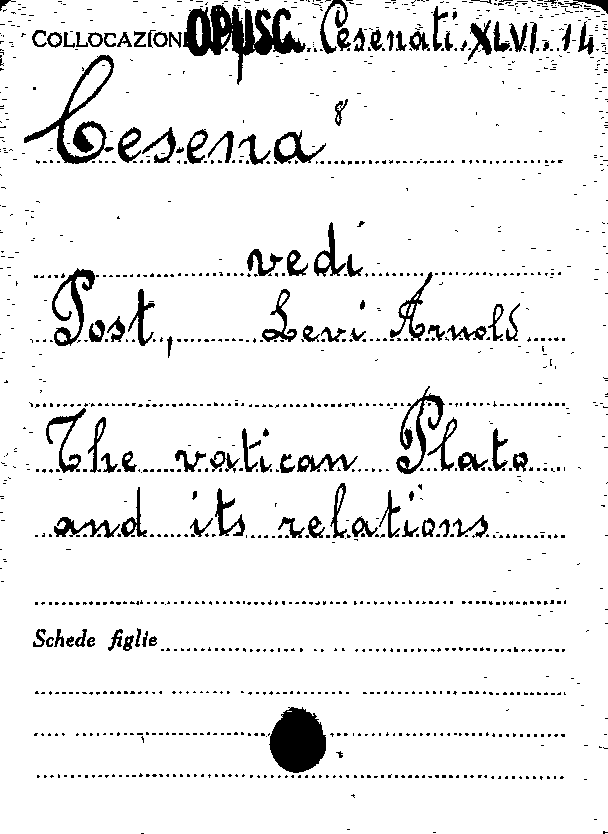 COLLOCAZIONE OPUSC. Cesenati. XLVI. 14
Cesena
vedi
Post, Levi Arnold
The vatican Plato
and its relations
Schede figlie